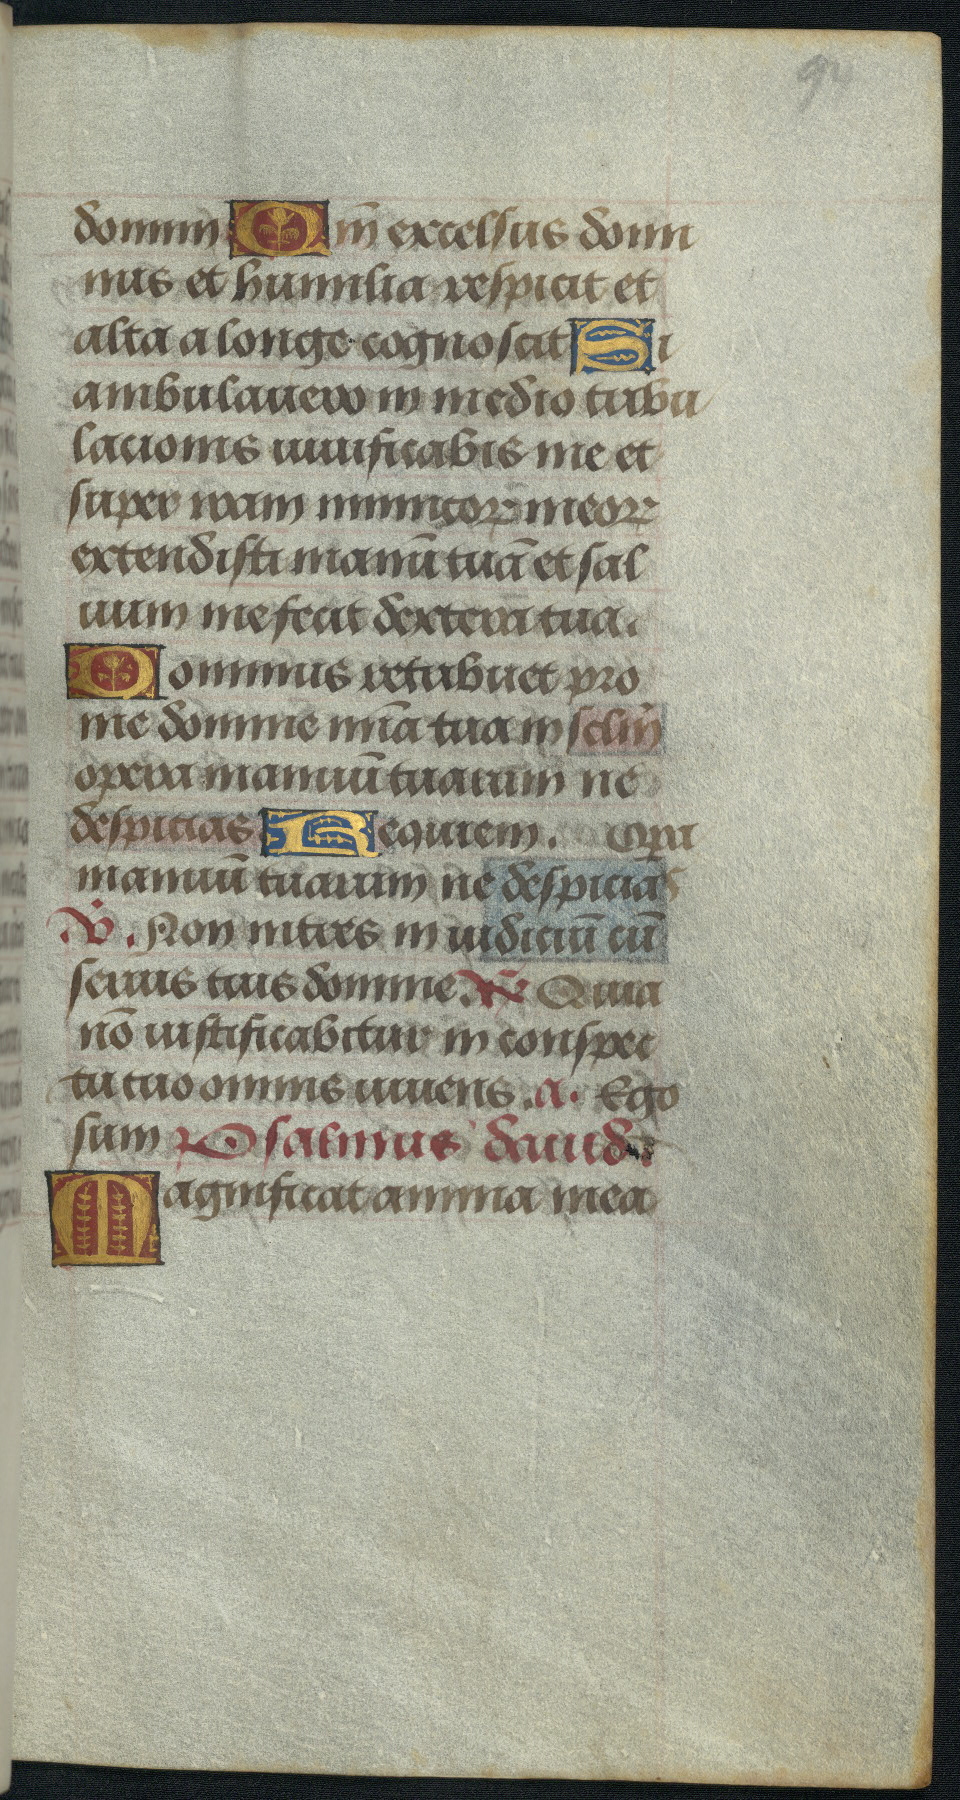 92
domini Qm̄ excelsus domi
nus et humilia respicit et
alta a longe cognoscit Si
ambulauero in medio tribu
lacionis uiuificabis me et
super iram inimicoꝝ meoꝝ
extendisti manū tuā et sal
uum me fecit dextera tua.
Dominus retribuet pro
me domine mīa tua in sclm̄
opera manuū tuarum ne
despicias Requiem. Opa
manuū tuarum ne despicias
V. Non intres in iudiciū cū
seruis tuis domine. R Quia
nō iustificabitur in conspec
tu tuo omnis uiuens. a. Ego
sum Psalmus dauid.
Magnificat anima mea